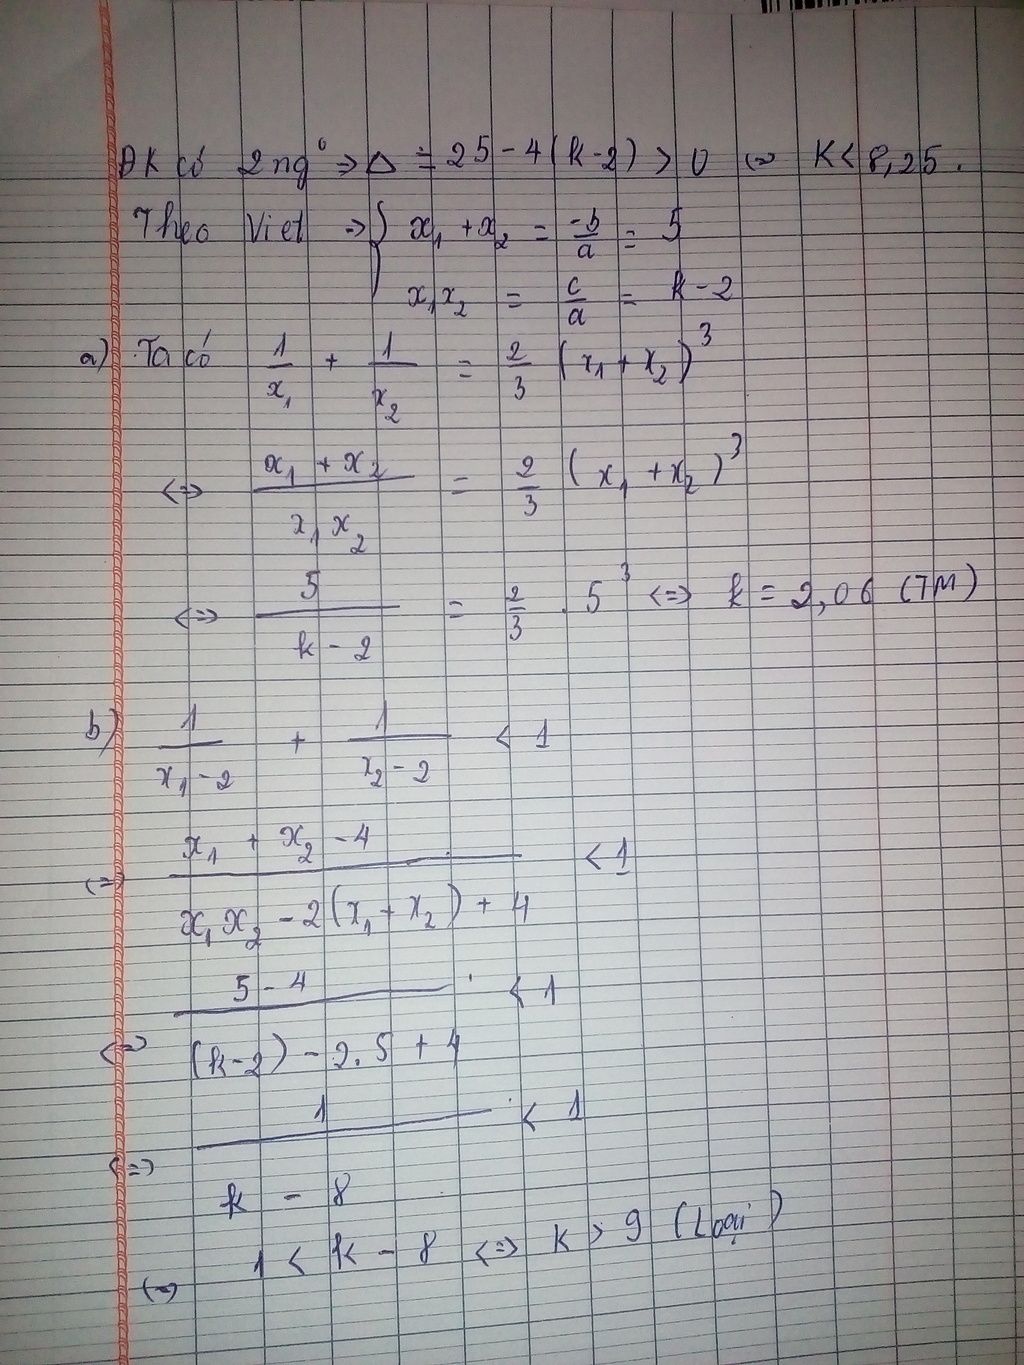 ĐK có 2 ng° => Δ = 25 - 4(k-2) > 0 <=> K < 8,25.
Theo Viet => { x₁ + x₂ = -b/a = 5
x₁x₂ = c/a = k - 2
a) Ta có 1/x₁ + 1/x₂ = 2/3 (x₁ + x₂)³
<=> (x₁ + x₂)/(x₁x₂) = 2/3 (x₁ + x₂)³
<=> 5/(k - 2) = 2/3 . 5³ <=> k = 2,06 (TM)
b) 1/(x₁ - 2) + 1/(x₂ - 2) < 1
<=> (x₁ + x₂ - 4)/(x₁x₂ - 2(x₁ + x₂) + 4) < 1
<=> (5 - 4)/((k-2) - 2.5 + 4) < 1
<=> 1/(k - 8) < 1
<=> 1 < k - 8 <=> K > 9 (Loại)